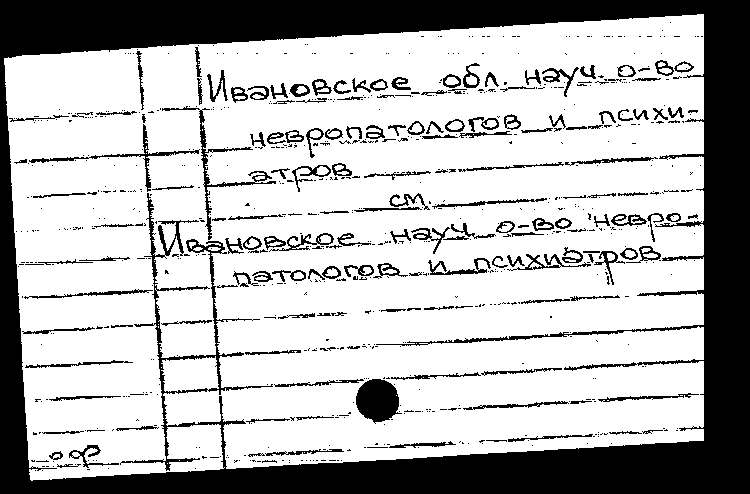 Ивановское обл. науч. о-во
невропатологов и психи-
атров
см.
Ивановское науч. о-во невро-
патологов и психиатров